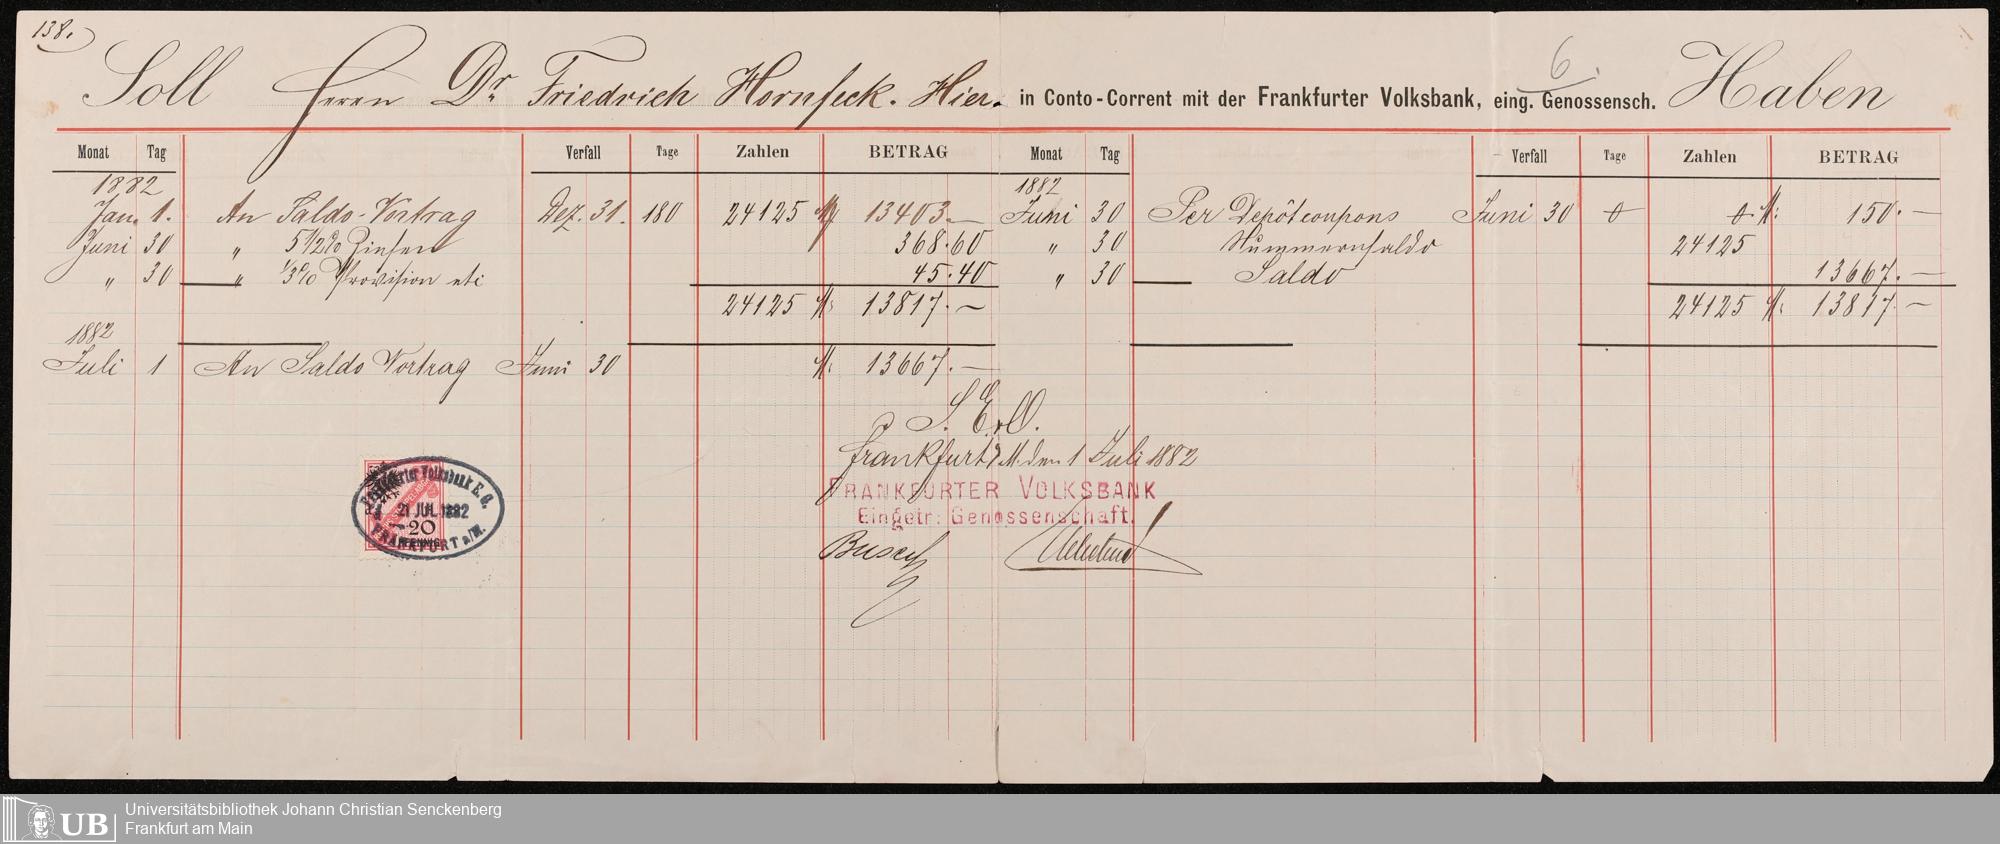 138.
6.
Soll Herrn Dr. Friedrich Hornfeck. Hier. in Conto-Corrent mit der Frankfurter Volksbank, eing. Genossensch. Haben
Monat Tag Verfall Tage Zahlen BETRAG Monat Tag Verfall Tage Zahlen BETRAG
1882 1882
Jan. 1. An Saldo-Vortrag Dez. 31. 180 24125 M 13403.— Juni 30 Per Depôtcoupons Juni 30 0 0 M. 150.—
Juni 30 " 5 1/2% Zinsen 368.60 " 30 Nummernsaldo 24125
" 30 " 1/3% Provision etc 45.40 " 30 Saldo 13667.—
24125 M. 13817.— 24125 M. 13817.—
1882
Juli 1 An Saldo Vortrag Juni 30 M. 13667.—
S. E. & O.
Frankfurt a/M. den 1 Juli 1882
FRANKFURTER VOLKSBANK
Eingetr: Genossenschaft.
Busch
Frankfurter Volksbank E. G.
21 JUL 1882
20
PFENNIG
FRANKFURT a/M.
UB
Universitätsbibliothek Johann Christian Senckenberg
Frankfurt am Main